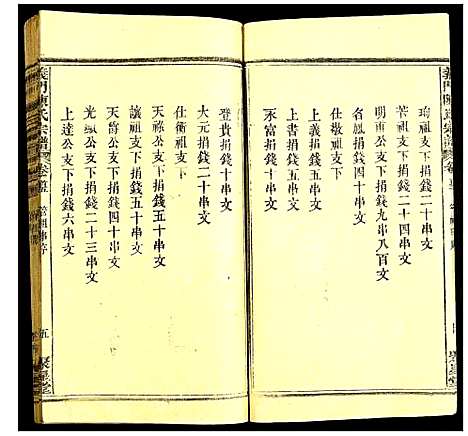 琦祖支下捐錢二十串文
若祖支下捐錢四十串文
明甫支下捐錢九串八百文
仕敬祖支下
上義捐錢五十串文
上書捐錢四十串文
永富捐錢十串文
登貴捐錢二十串文
大元捐錢二十串文
仕衛祖支下
天祿公支下捐錢五十串文
讓祖支下捐錢五十串文
天爵公支下捐錢四十串文
光顯公支下捐錢二十三串文
上達公支下捐錢六串文
義門陳氏宗譜
五
聚星堂